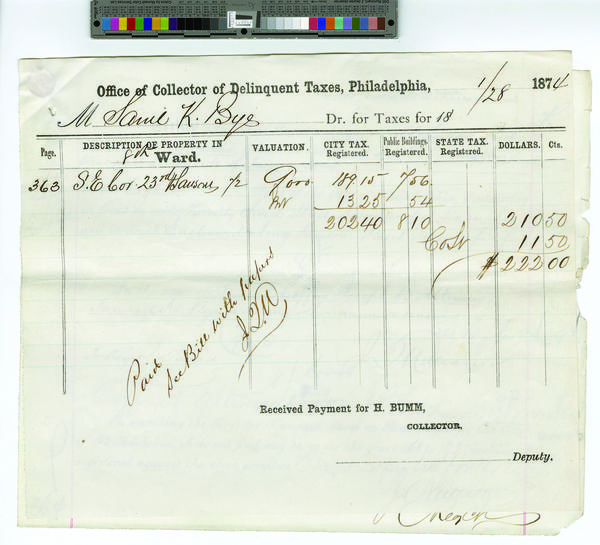 Office of Collector of Delinquent Taxes, Philadelphia, 1/28 1874
M Saml K. Bye Dr. for Taxes for 18
Page. DESCRIPTION OF PROPERTY IN 8th Ward. VALUATION. CITY TAX. Registered. Public Buildings. Registered. STATE TAX. Registered. DOLLARS. Cts.
363 S.E Cor. 23rd Sansom 9000 189.15 7 56
13 25 54
202 40 8 10 210 50
Cost 11 50
$ 222 00
Paid
See Bill with
Received Payment for H. BUMM,
COLLECTOR.
Deputy.